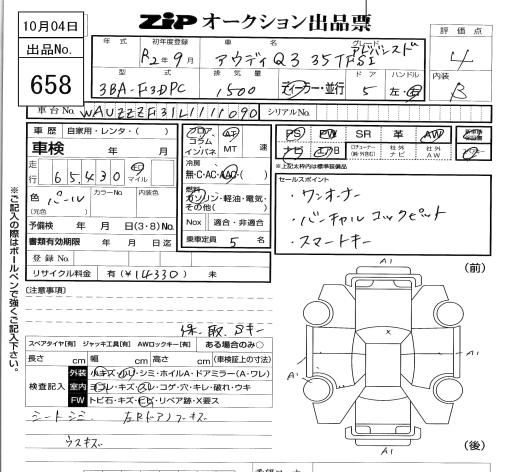 10月04日
ZIP オークション出品票
出品No.
658
年式 初年度登録 車名 グレード 評価点
R2年9月 アウディQ3 35TFSI アドバンスド
4
型式 排気量 ディーラー・並行 ドア ハンドル 内装
3BA-F3DPC 1500 5 左・右 B
車台No. WAUZZZF31L1111090 シリアルNo.
車歴 自家用・レンタ・( )
車検 年 月
走行 65,430 km マイル
色 パール カラーNo. 内装色
(元色)
予備検 年 月 日(3・8)No.
書類有効期限 年 月 日迄
登録No.
リサイクル料金 有(¥14330) 未
フロア コラム インパネ AT MT 速
冷房
無・C・AC・AAC・( )
燃料
ガソリン・軽油・電気・その他( )
Nox 適合・非適合
乗車定員 5 名
PS PW SR 革 AW
ナビ 社外ナビ 社外AW
※上記太枠内は標準装備品
セールスポイント
・ワンオーナー
・バーチャルコックピット
・スマートキー
[注意事項]
保、取、Sキー
スペアタイヤ[有] ジャッキ工具[有] AWロックキー[有] ある場合のみ○
長さ cm 幅 cm 高さ cm (車検証上の寸法)
検査記入
外装 小キズ・小リ・シミ・ホイルA・ドアミラー(A・ワレ)
室内 ヨゴレ・キズ・スレ・コゲ・穴・キレ・破れ・ウキ
FW トビ石・キズ・ヒビ・リペア跡・X要ス
シートシミ 左Rドアノブキズ
ウスキズ
※ご記入の際はボールペンで強くご記入下さい。
(前)
A1
A1
A1
A1
×
(後)